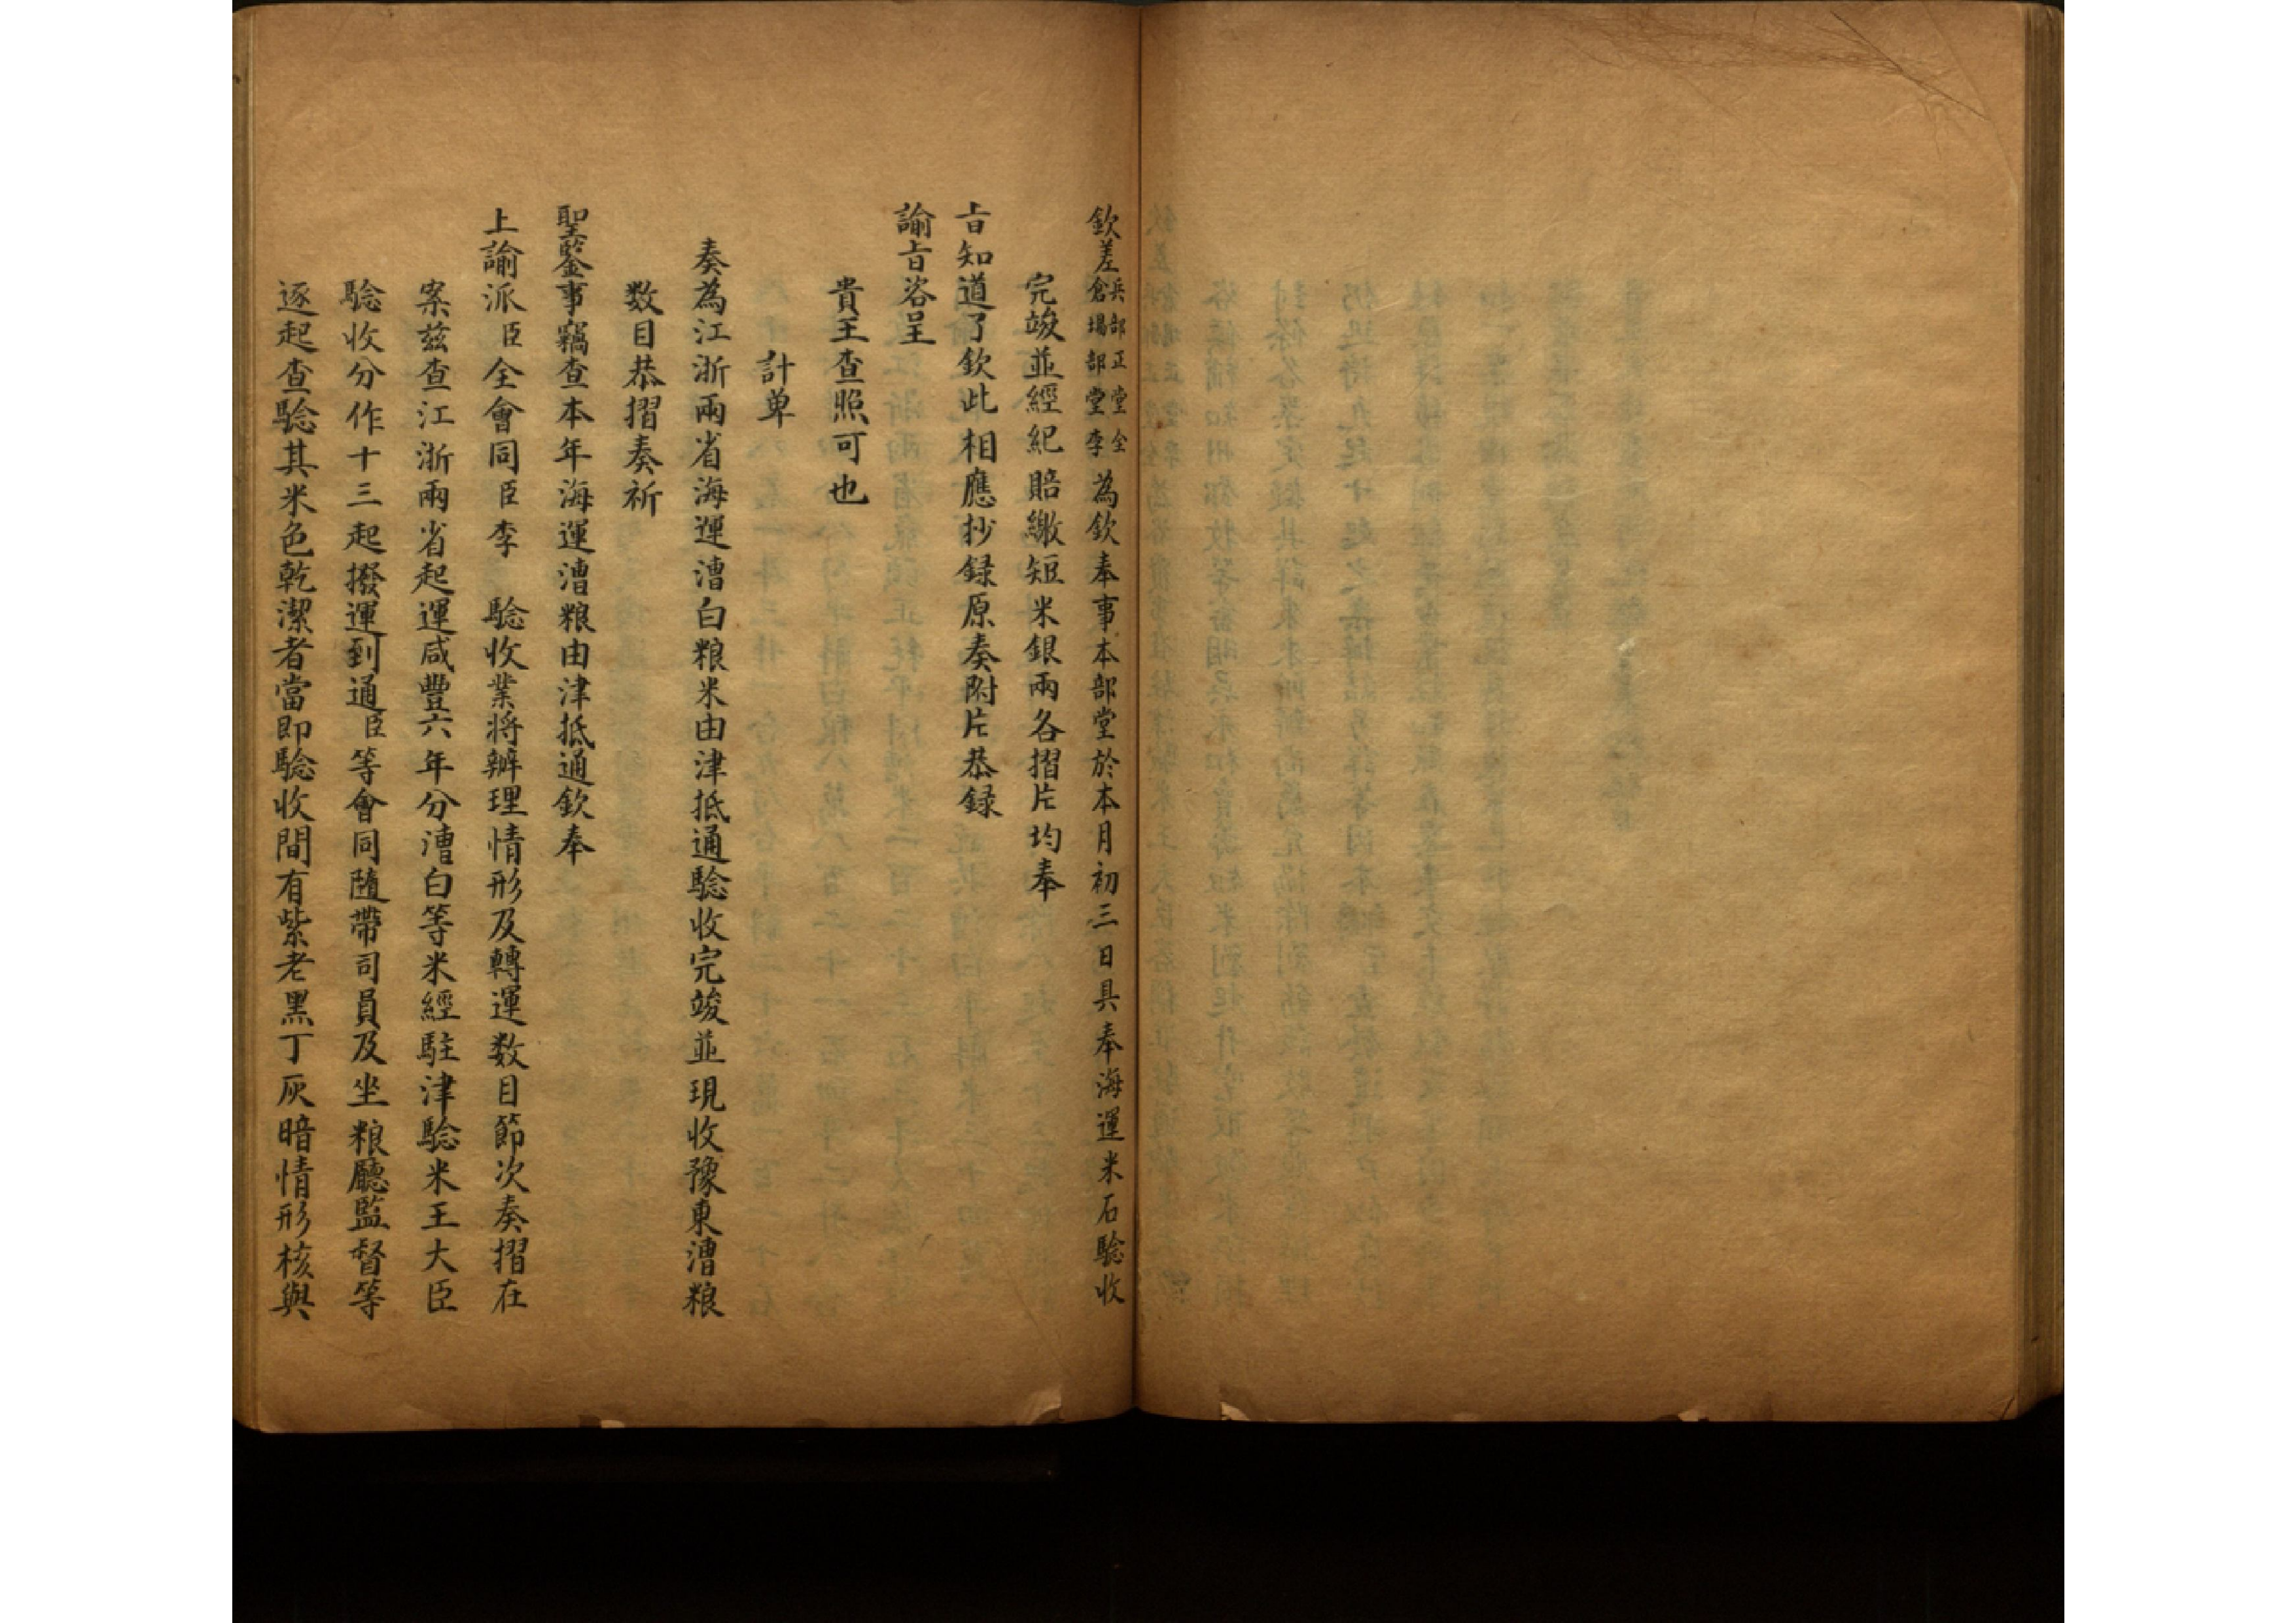 欽差兵部正堂全倉場部堂李為欽奉事本部堂於本月初三日具奉海運米石騐收
完竣並經紀賠繳短米銀兩各摺片均奉
旨知道了欽此相應抄録原奏附片恭録
諭旨咨呈
貴王查照可也
計单
奏為江浙兩省海運漕白粮米由津抵通騐收完竣並現收豫東漕粮
数目恭摺奏祈
聖鑒事竊查本年海運漕粮由津抵通欽奉
上諭派臣全會同臣李騐收業将辦理情形及轉運数目節次奏摺在
案兹查江浙兩省起運咸豐六年分漕白等米經駐津騐米王大臣
騐收分作十三起撥運到通臣等會同隨帶司員及坐粮廳監督等
逐起查騐其米色乾潔者當即騐收間有紫老黑丁灰暗情形核與